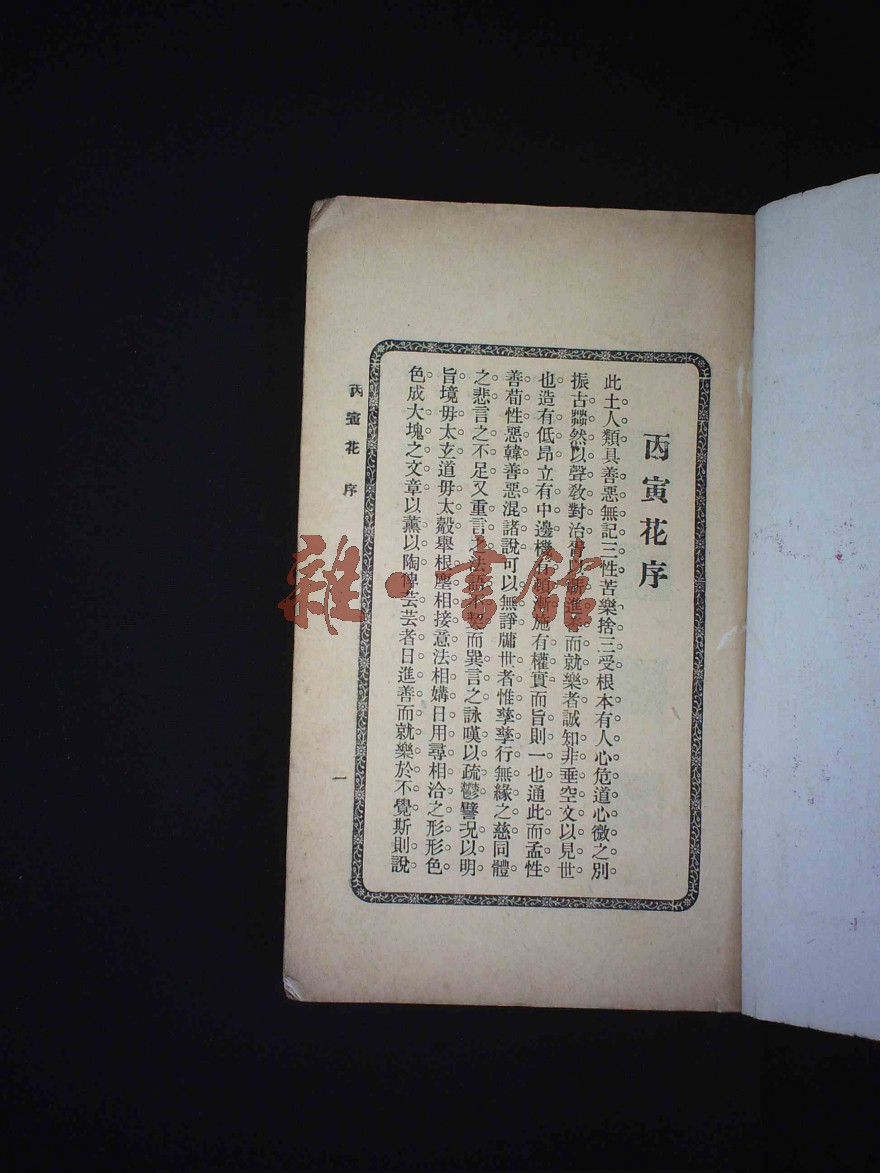 丙寅花序
此土人類具善惡無記三性苦樂捨三受根本有人心危道心微之別
振古蠲然以聲教對治胥以 進善而就樂者誠知非垂空文以見世
也造有低昂立有中邊機有頓漸施有權實而旨則一也通此而孟性
善荀性惡韓善惡混諸說可以無諍牖世者惟孳孳行無緣之慈同體
之悲言之不足又重言之法語不契而巽言之詠嘆以疏鬱譬況以明
旨境毋太玄道毋太觳舉根塵相接意法相媾日用尋相洽之形形色
色成大塊之文章以薰以陶俾芸芸者日進善而就樂於不覺斯則說
丙寅花 序
一
雜·書館